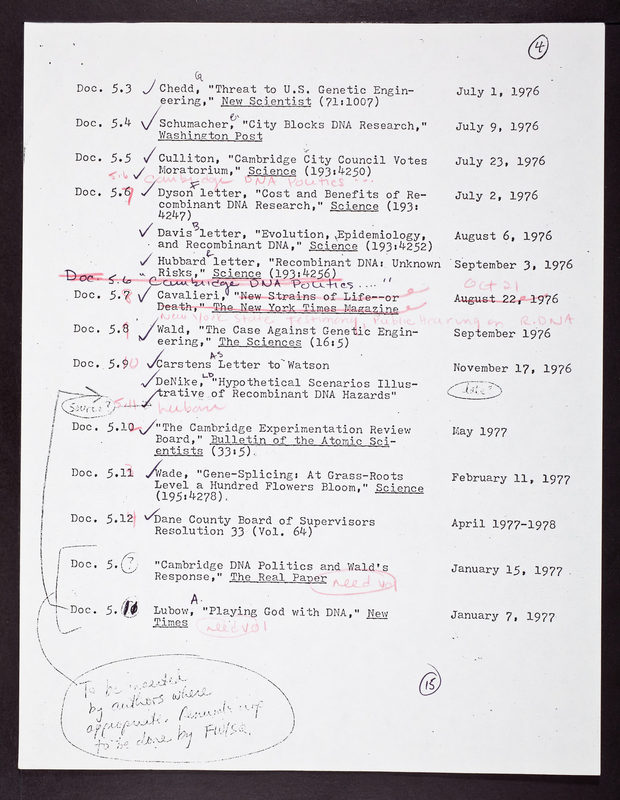 4
G
Doc. 5.3 ✓ Chedd, "Threat to U.S. Genetic Engin- July 1, 1976
eering," New Scientist (71:1007)
Doc. 5.4 ✓ Schumacher, "City Blocks DNA Research," July 9, 1976
Washington Post
Doc. 5.5 ✓ Culliton, "Cambridge City Council Votes July 23, 1976
Moratorium," Science (193:4250)
5.6 ✓ Cambridge DNA Politics ...
Doc. 5.6 ✓ Dyson letter, "Cost and Benefits of Re- July 2, 1976
combinant DNA Research," Science (193:
4247)
✓ Davis letter, "Evolution, Epidemiology, August 6, 1976
and Recombinant DNA," Science (193:4252)
✓ Hubbard letter, "Recombinant DNA: Unknown September 3, 1976
Risks," Science (193:4256)
Doc. 5.6 "Cambridge DNA Politics ...." Oct 21
Doc. 5.7 ✓ Cavalieri, "New Strains of Life--or August 22, 1976
Death," The New York Times Magazine
New York State Testimony, Public Hearing on R.DNA
Doc. 5.8 ✓ Wald, "The Case Against Genetic Engin- September 1976
eering," The Sciences (16:5)
Doc. 5.9 ✓ Carstens Letter to Watson November 17, 1976
✓ DeNike, "Hypothetical Scenarios Illus- date?
trative of Recombinant DNA Hazards"
Source? 5.11 Lubow
Doc. 5.10 ✓ "The Cambridge Experimentation Review May 1977
Board," Bulletin of the Atomic Sci-
entists (33:5).
Doc. 5.11 ✓ Wade, "Gene-Splicing: At Grass-Roots February 11, 1977
Level a Hundred Flowers Bloom," Science
(195:4278).
Doc. 5.12 ✓ Dane County Board of Supervisors April 1977-1978
Resolution 33 (Vol. 64)
Doc. 5.? "Cambridge DNA Politics and Wald's January 15, 1977
Response," The Real Paper need vol
A.
Doc. 5. Lubow, "Playing God with DNA," New January 7, 1977
Times need vol
15
To be inserted
by authors where
appropriate. Renumbering
to be done by